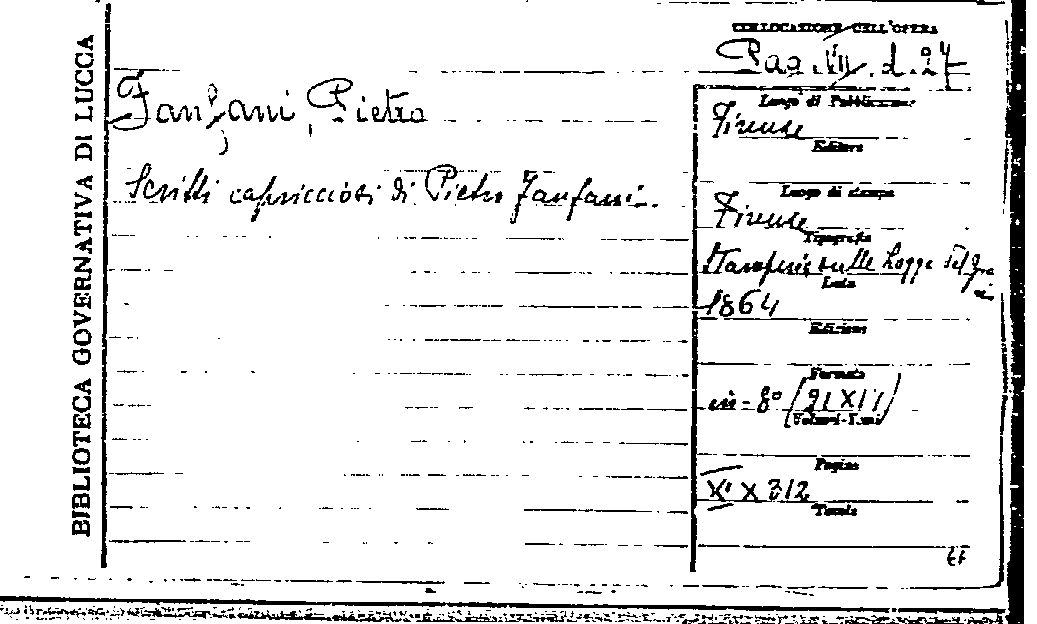 BIBLIOTECA GOVERNATIVA DI LUCCA
COLLOCAZIONE DELL'OPERA
Pag. XII. d. 27
Fanfani, Pietro
Scritti capricciosi di Pietro Fanfani.
Luogo di Pubblicazione
Firenze
Editore
Luogo di stampa
Firenze
Tipografia
Stamperia sulle Logge del Gra
no
Data
1864
Edizione
Formato
in-8° (21 X 11)
Volumi-Tomi
Pagine
X 312
Tavole